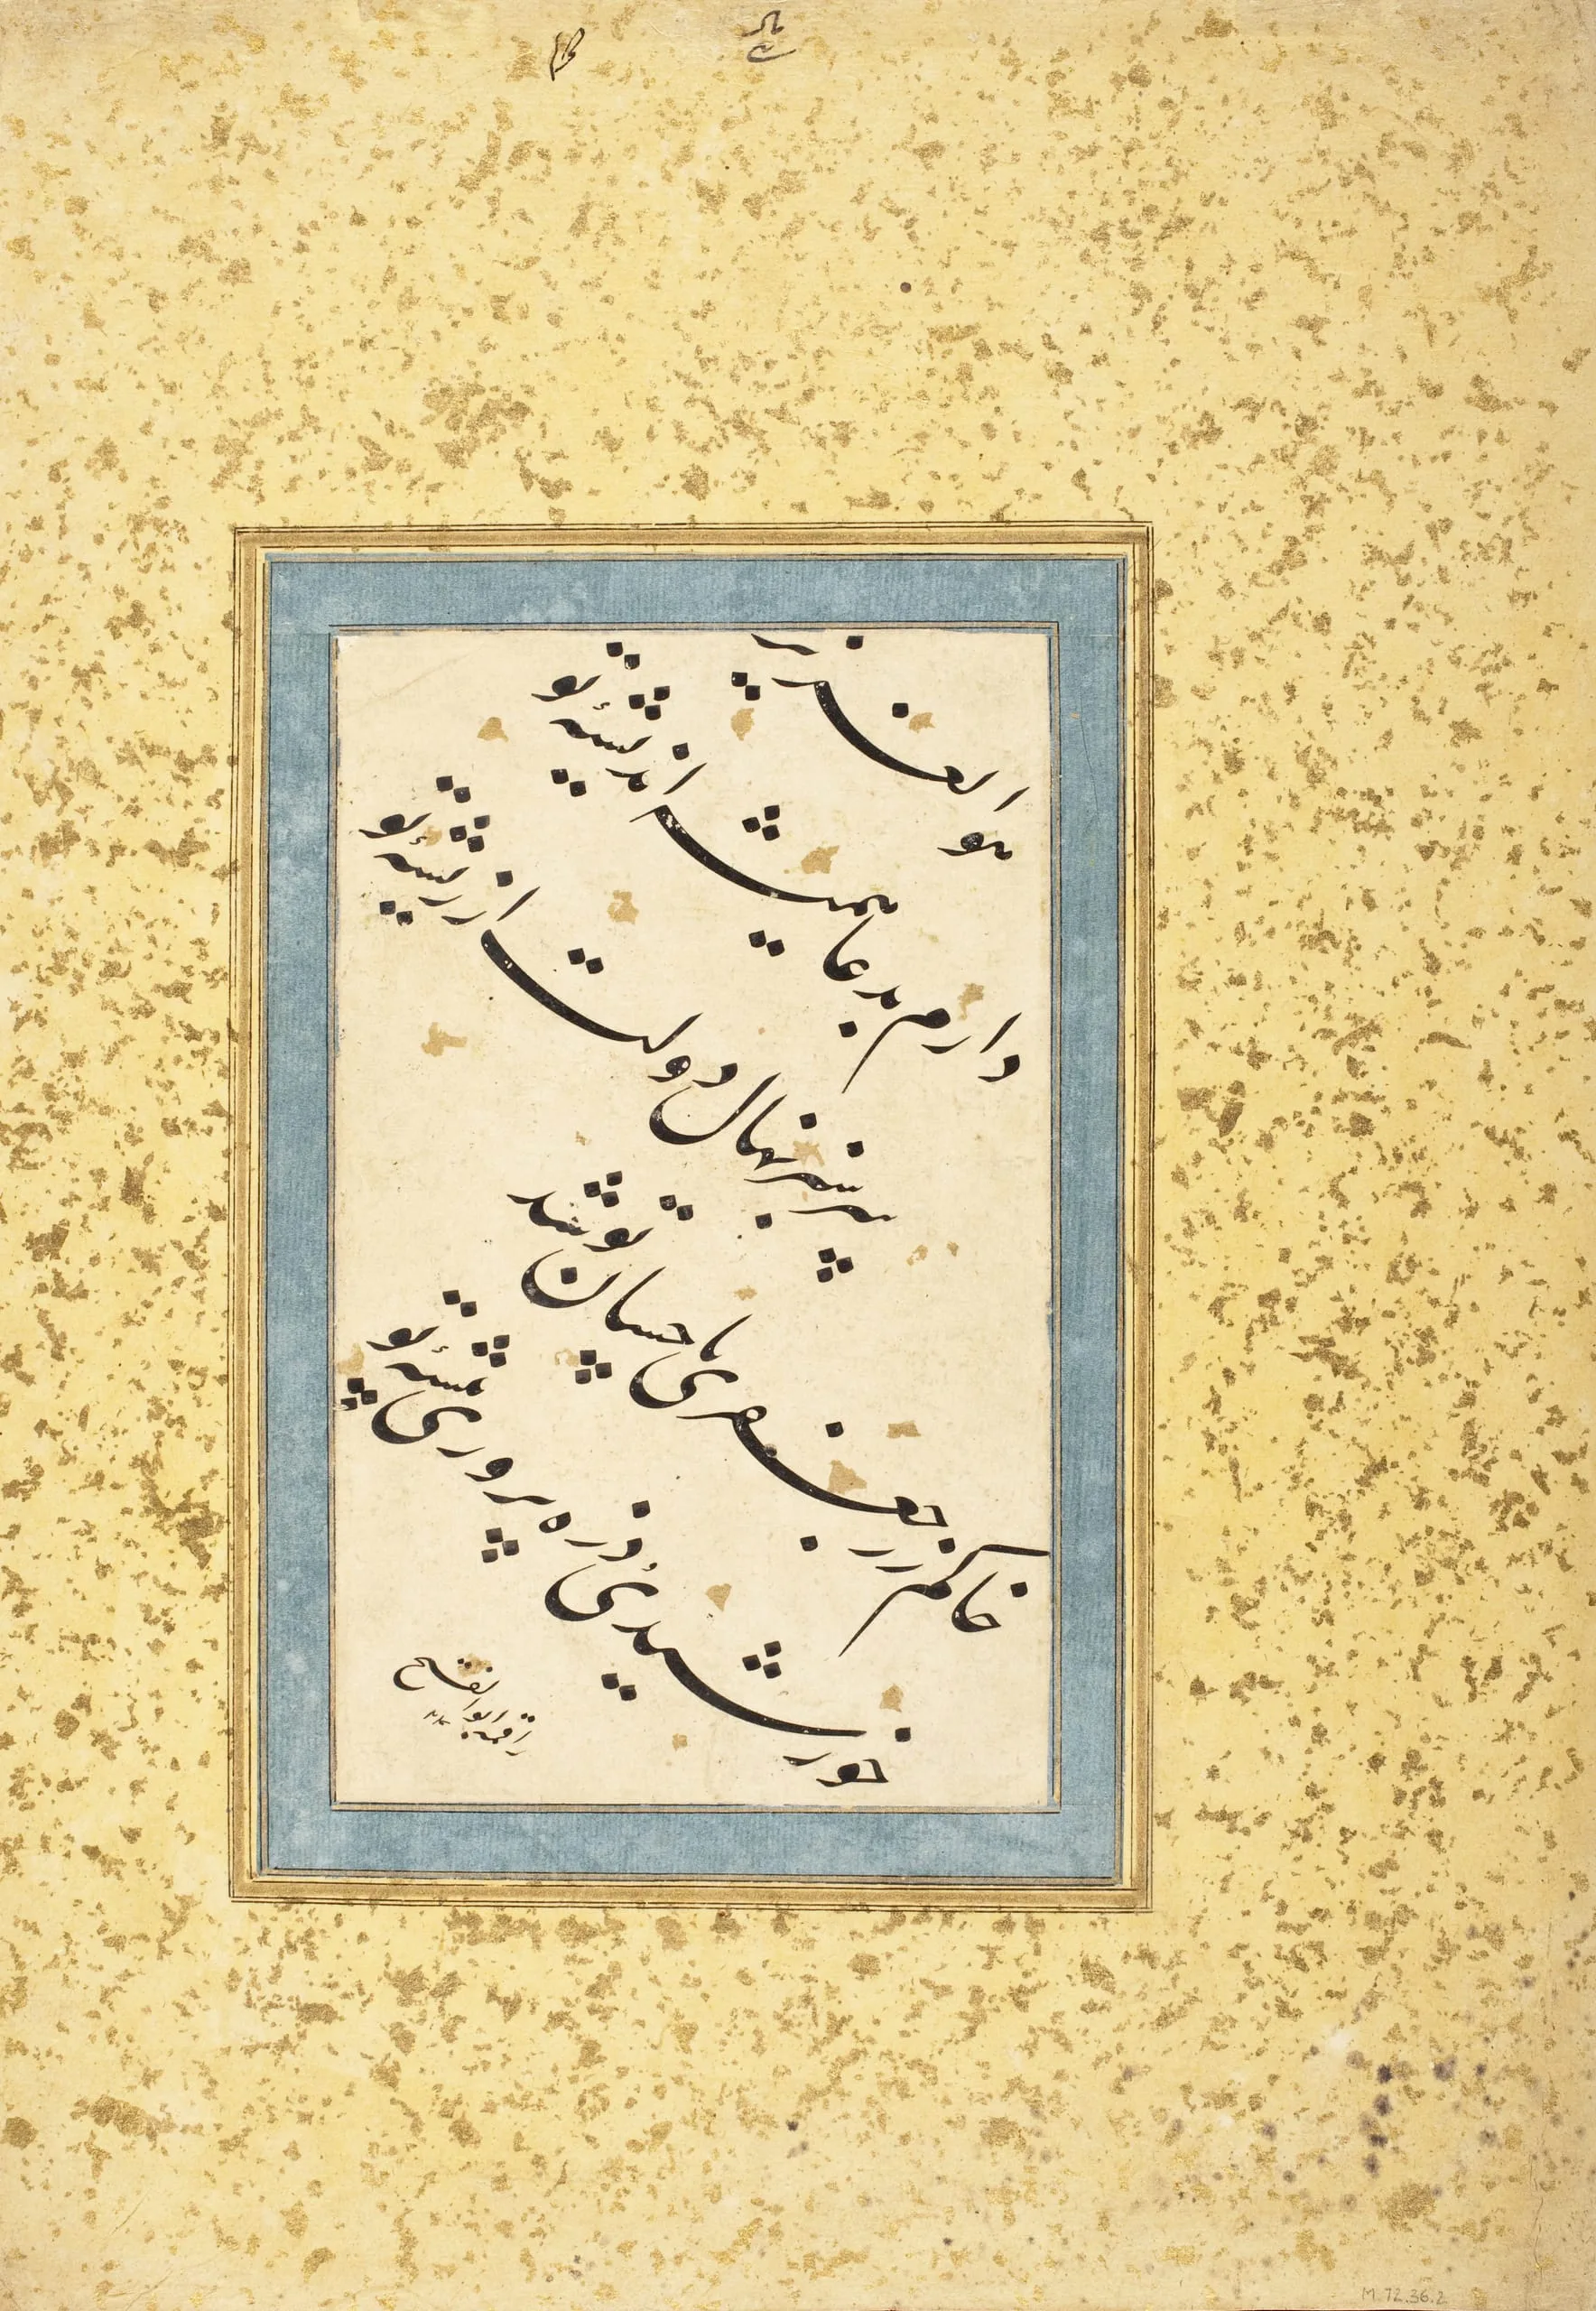 هو العزیز
دارم بدعا همیشه اندیشهٔ تو
سرسبز نهال دولت از ریشهٔ تو
خاکم زر جعفری باحسان تو شد
خورشیدیٔ ذره پروری پیشهٔ تو
راقمه ابو
M.72.36.2